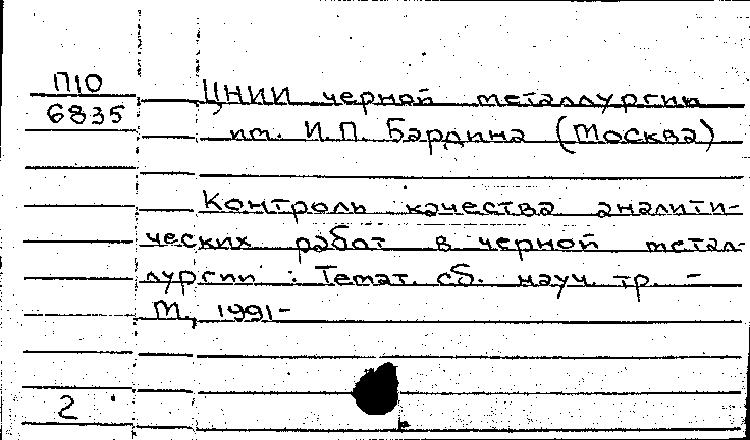 П10
6835
ЦНИИ черной металлургии
им. И.П. Бардина (Москва)
Контроль качества аналити-
ческих работ в черной метал-
лургии : Темат. сб. науч. тр. -
М., 1991-
2